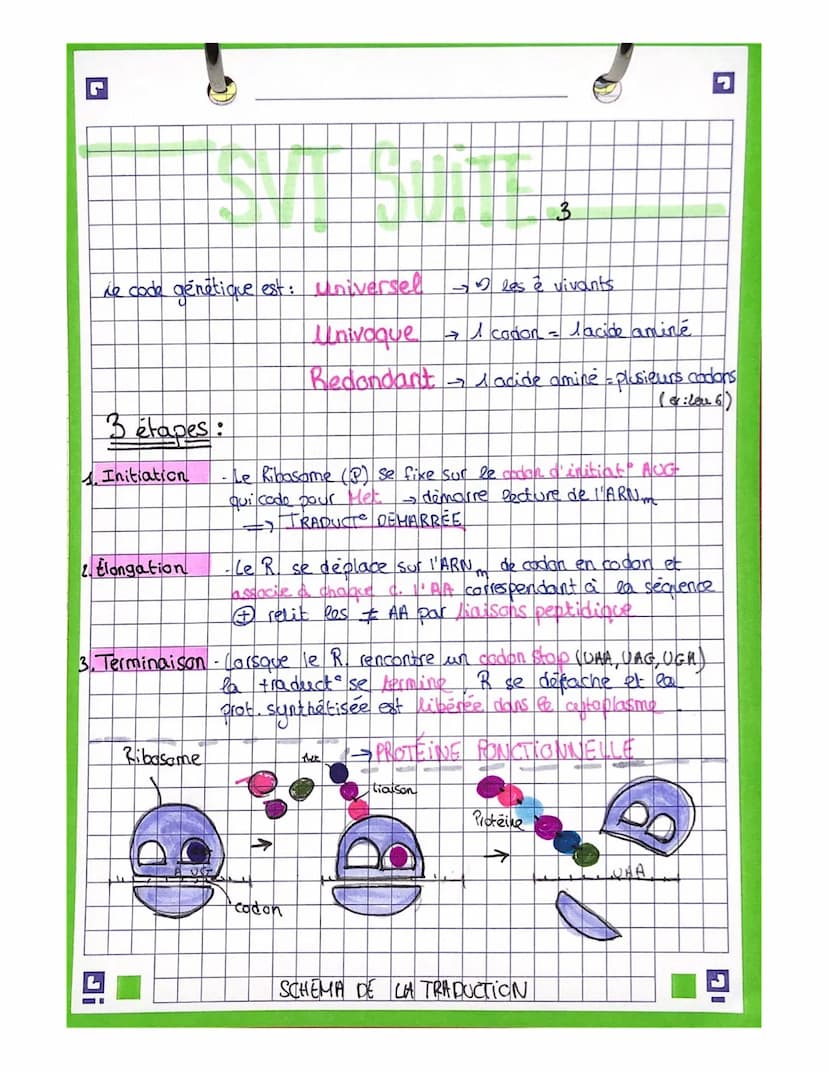 SVT SUiTE
3
Le code génétique est : universel → les ê vivants
Univoque → 1 codon = 1 acide aminé
Redondant → 1 acide aminé = plusieurs codons
(ex : leu 6)
3 étapes :
1. Initiation - Le Ribosome (R) se fixe sur le codon d'initiat° AUG
qui code pour Met → démarre lecture de l'ARNm
=> TRADUCT° DÉMARRÉE
2. Élongation - Le R. se déplace sur l'ARNm de codon en codon et
associe à chaque c. l'AA correspondant à la séquence
⊕ relit les ≠ AA par liaisons peptidique
3. Terminaison - Lorsque le R. rencontre un codon stop (UAA, UAG, UGA)
la traduct° se termine, R se détache et la
prot. synthétisée est libérée dans le cytoplasme
→ PROTÉiNE FONCTIONNELLE
Ribosome
liaison
Protéine
AUG
UAA
codon
SCHÉMA DE LA TRADUCTiON